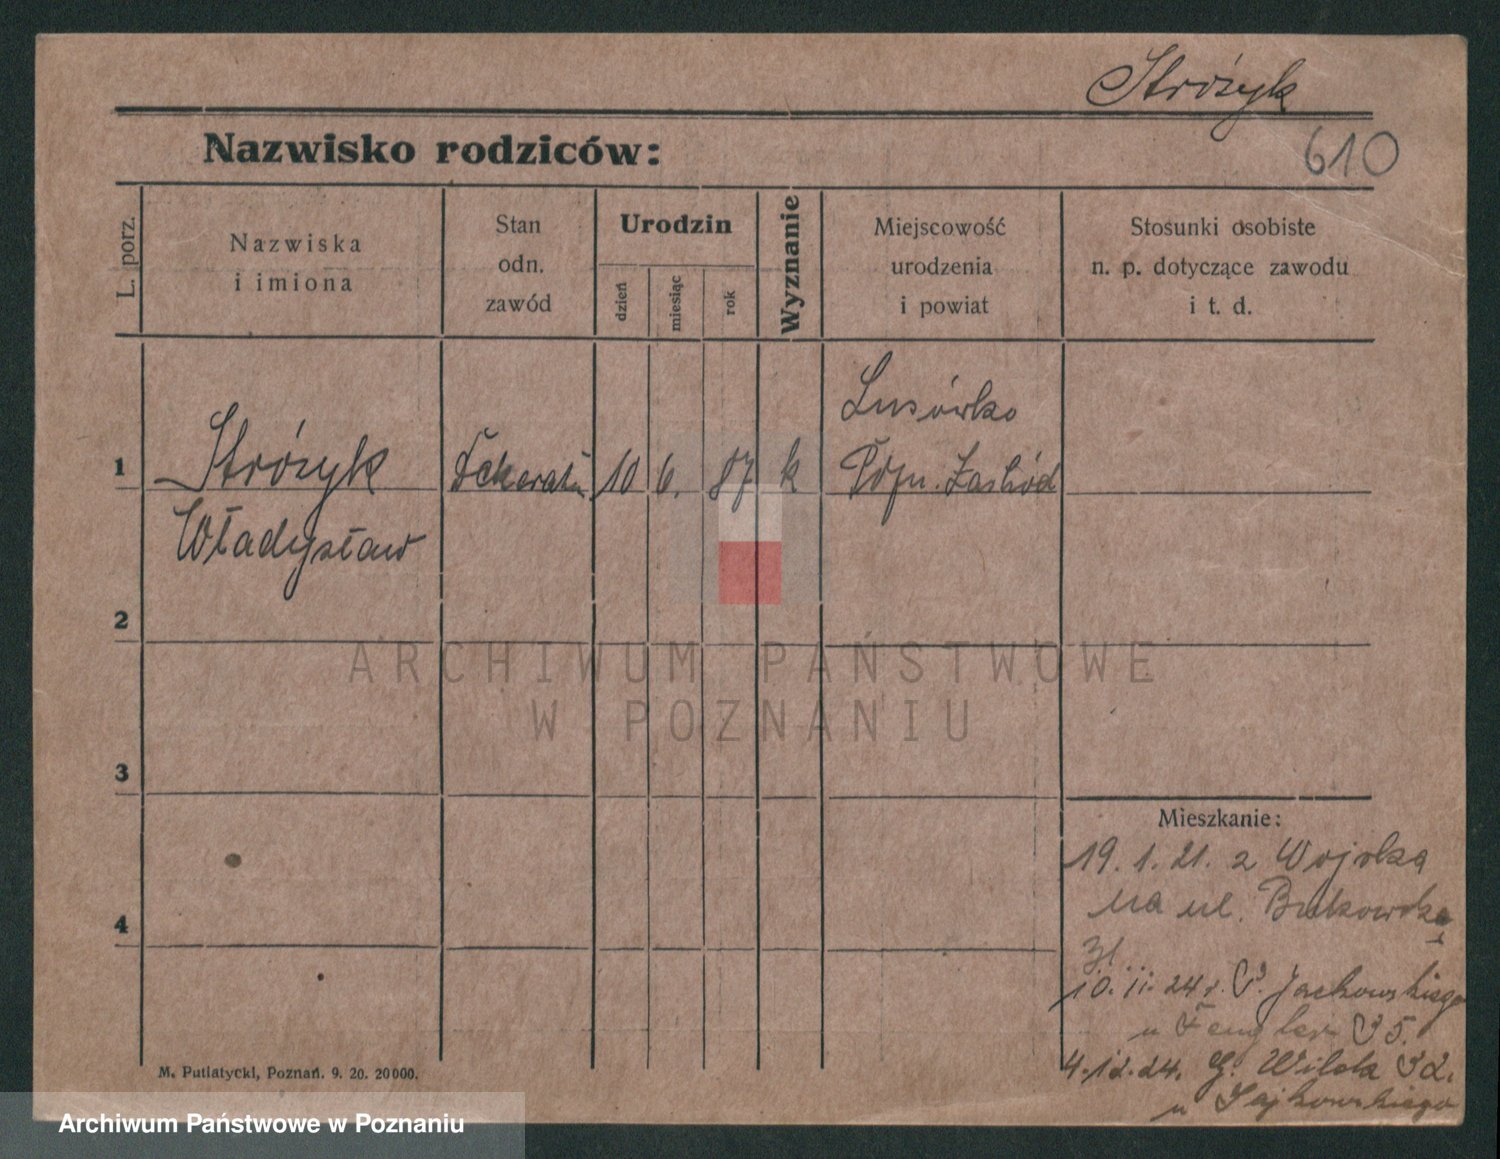 Stróżyk
610
Nazwisko rodziców:
L. porz.
Nazwiska
i imiona
Stan
odn.
zawód
Urodzin
dzień
miesiąc
rok
Wyznanie
Miejscowość
urodzenia
i powiat
Stosunki osobiste
n. p. dotyczące zawodu
i t. d.
1
Stróżyk
Władysław
10
6.
87
k
Lusówko
Zachód
2
3
4
ARCHIWUM PAŃSTWOWE
W POZNANIU
Mieszkanie:
19. 1. 21. z Wojska
na ul. Bukowska
10. 11. 24 r. Jackowskiego
u Fengler 35.
4.12.24. G. Wilda 32.
u Jajkowskiego
M. Putiatycki, Poznań. 9. 20. 20000.
Archiwum Państwowe w Poznaniu